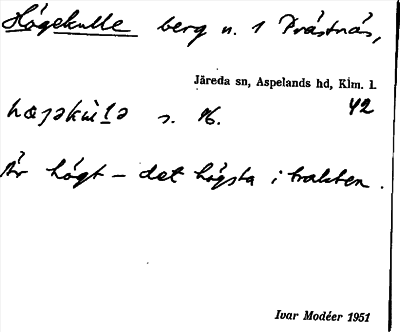 Högekulle berg n. 1 Prästnäs,
Järeda sn, Aspelands hd, Klm. l.
42
s. 
Är högt – det högsta i trakten.
Ivar Modéer 1951